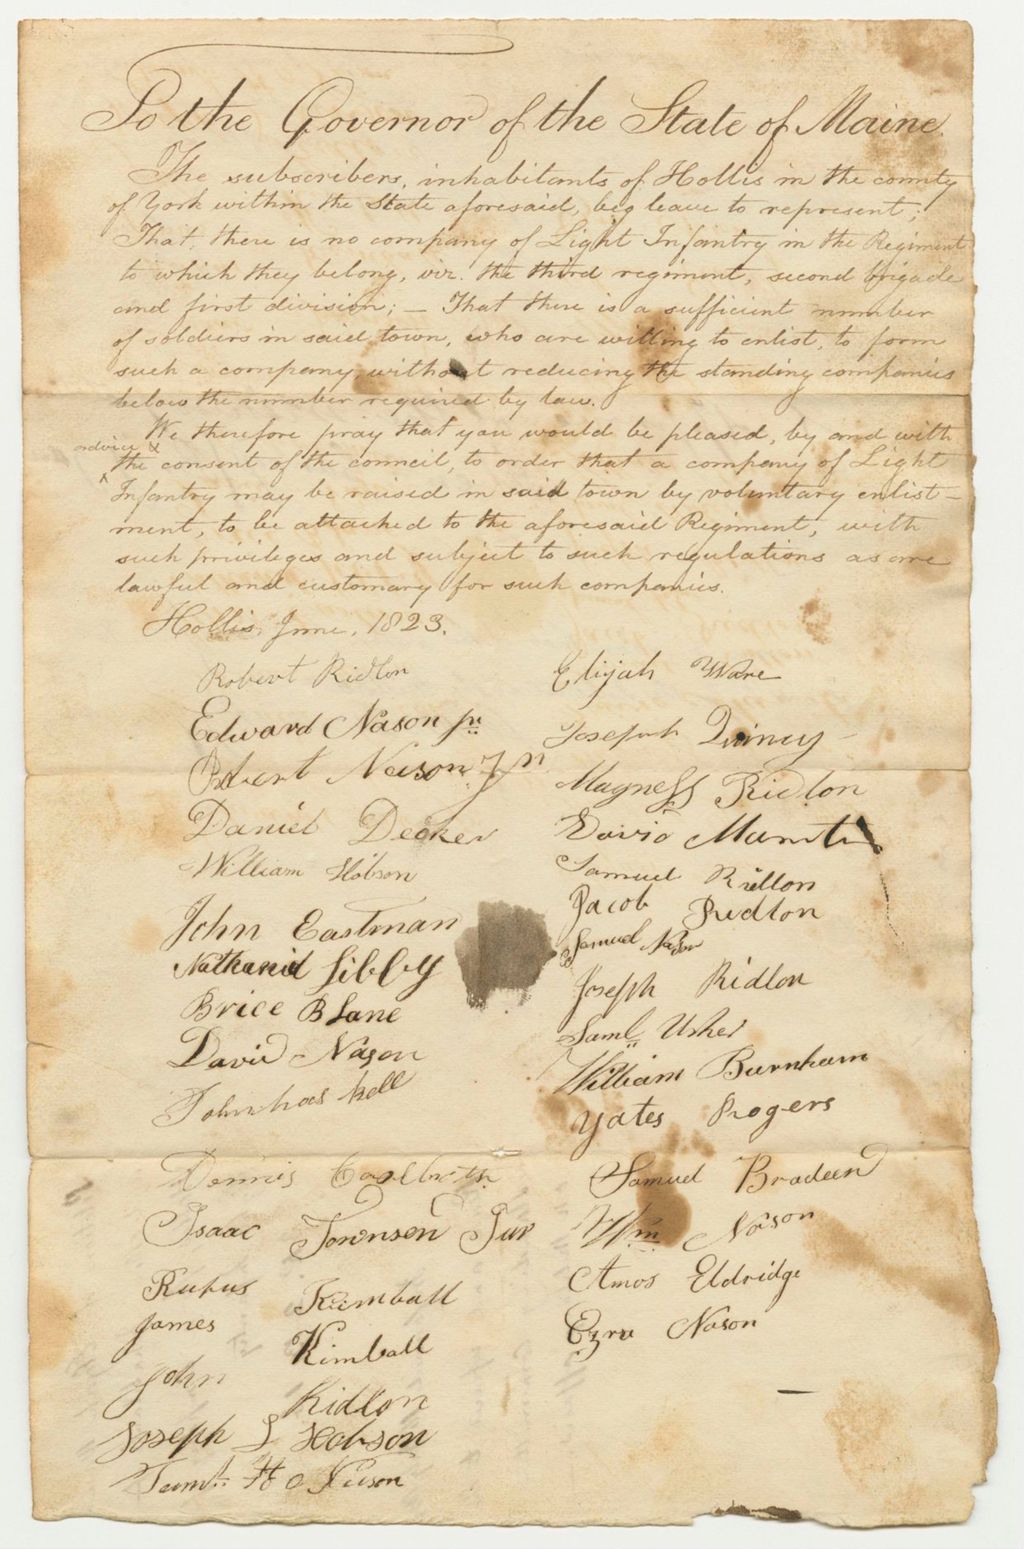 To the Governor of the State of Maine.
The subscribers, inhabitants of Hollis in the county
of York within the State aforesaid, beg leave to represent;
That, there is no company of Light Infantry in the Regiment
to which they belong, viz. the third regiment, second brigade
and first division; — That there is a sufficient number
of soldiers in said town, who are willing to enlist, to form
such a company without reducing the standing companies
below the number required by law.
We therefore pray that you would be pleased, by and with
advice &
the consent of the council, to order that a company of Light
Infantry may be raised in said town by voluntary enlist-
ment, to be attached to the aforesaid Regiment, with
such privileges and subject to such regulations as are
lawful and customary for such companies.
Hollis, June, 1823.
Robert Ridlon
Edward Nason jr
Robert Nason Jn
Daniel Decker
William Hobson
John Eastman
Nathaniel Libby
Brice B Lane
David Nason
Dennis
Isaac Townsen Jur
Rufus Kimball
James Kimball
John Ridlon
Joseph L Hobson
Elijah Ware
Joseph Quincy
Magness Ridlon
David
Samuel Ridlon
Jacob Ridlon
Samuel Nason
Joseph Ridlon
Saml Usher
William Burnham
Yates Rogers
Samuel Bradeen
Wm Nason
Amos Eldridge
Ezra Nason